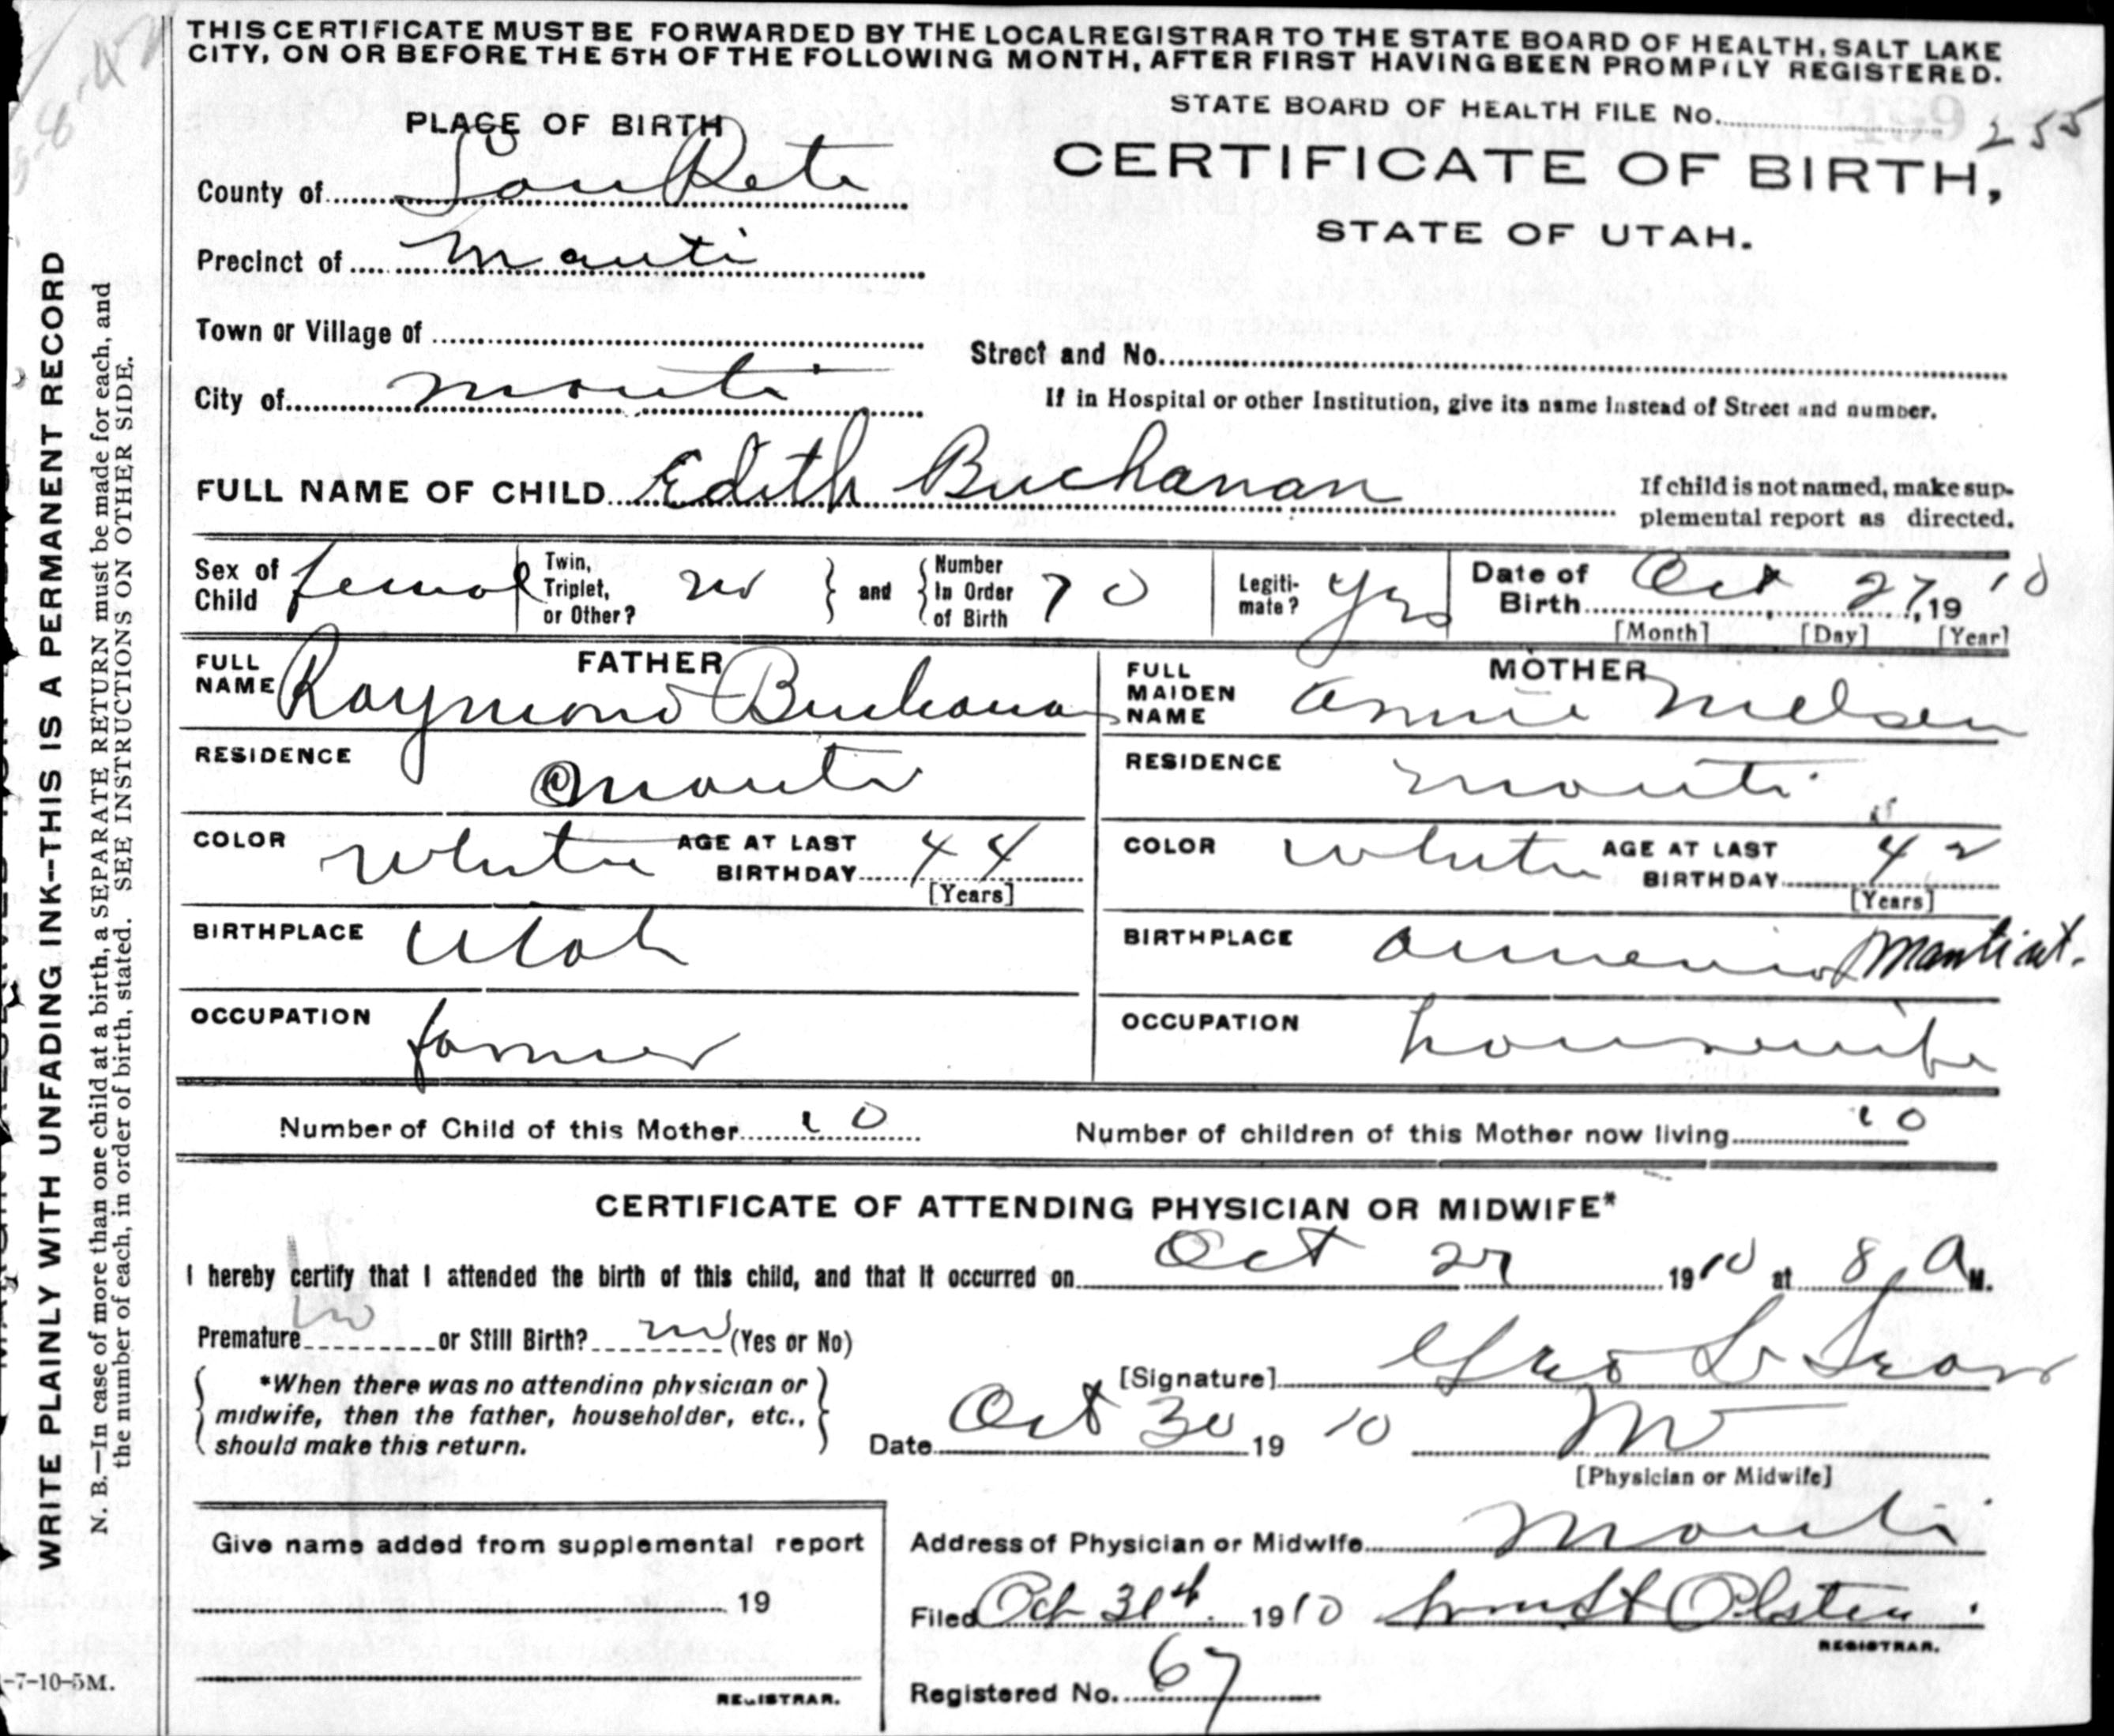 THIS CERTIFICATE MUST BE FORWARDED BY THE LOCAL REGISTRAR TO THE STATE BOARD OF HEALTH, SALT LAKE
CITY, ON OR BEFORE THE 5TH OF THE FOLLOWING MONTH, AFTER FIRST HAVING BEEN PROMPTLY REGISTERED.
STATE BOARD OF HEALTH FILE No. 255
PLACE OF BIRTH
CERTIFICATE OF BIRTH,
STATE OF UTAH.
County of SanPete
Precinct of Manti
Town or Village of
Street and No.
City of Manti
If in Hospital or other Institution, give its name instead of Street and number.
FULL NAME OF CHILD Edith Buchanan
If child is not named, make sup-
plemental report as directed.
Sex of Child female
Twin, Triplet, or Other? no
and Number In Order of Birth 10
Legiti-mate? Yes
Date of Birth Oct 27, 1910
[Month] [Day] [Year]
FATHER
FULL NAME Raymond Buchanan
MOTHER
FULL MAIDEN NAME Annie Nielsen
RESIDENCE Manti
RESIDENCE Manti
COLOR White AGE AT LAST BIRTHDAY 44
[Years]
COLOR White AGE AT LAST BIRTHDAY 42
[Years]
BIRTHPLACE Utah
BIRTHPLACE Manti ut.
OCCUPATION farmer
OCCUPATION housewife
Number of Child of this Mother 10
Number of children of this Mother now living 10
CERTIFICATE OF ATTENDING PHYSICIAN OR MIDWIFE*
I hereby certify that I attended the birth of this child, and that it occurred on Oct 27 1910 at 8 A M.
Premature no or Still Birth? no (Yes or No)
*When there was no attending physician or
midwife, then the father, householder, etc.,
should make this return.
[Signature] Geo L
Date Oct 30 1910
[Physician or Midwife]
Give name added from supplemental report
19
REGISTRAR.
Address of Physician or Midwife Manti
Filed Oct 31st 1910
REGISTRAR.
Registered No. 67
WRITE PLAINLY WITH UNFADING INK--THIS IS A PERMANENT RECORD
N. B.—In case of more than one child at a birth, a SEPARATE RETURN must be made for each, and
the number of each, in order of birth, stated. SEE INSTRUCTIONS ON OTHER SIDE.
-7-10-5M.